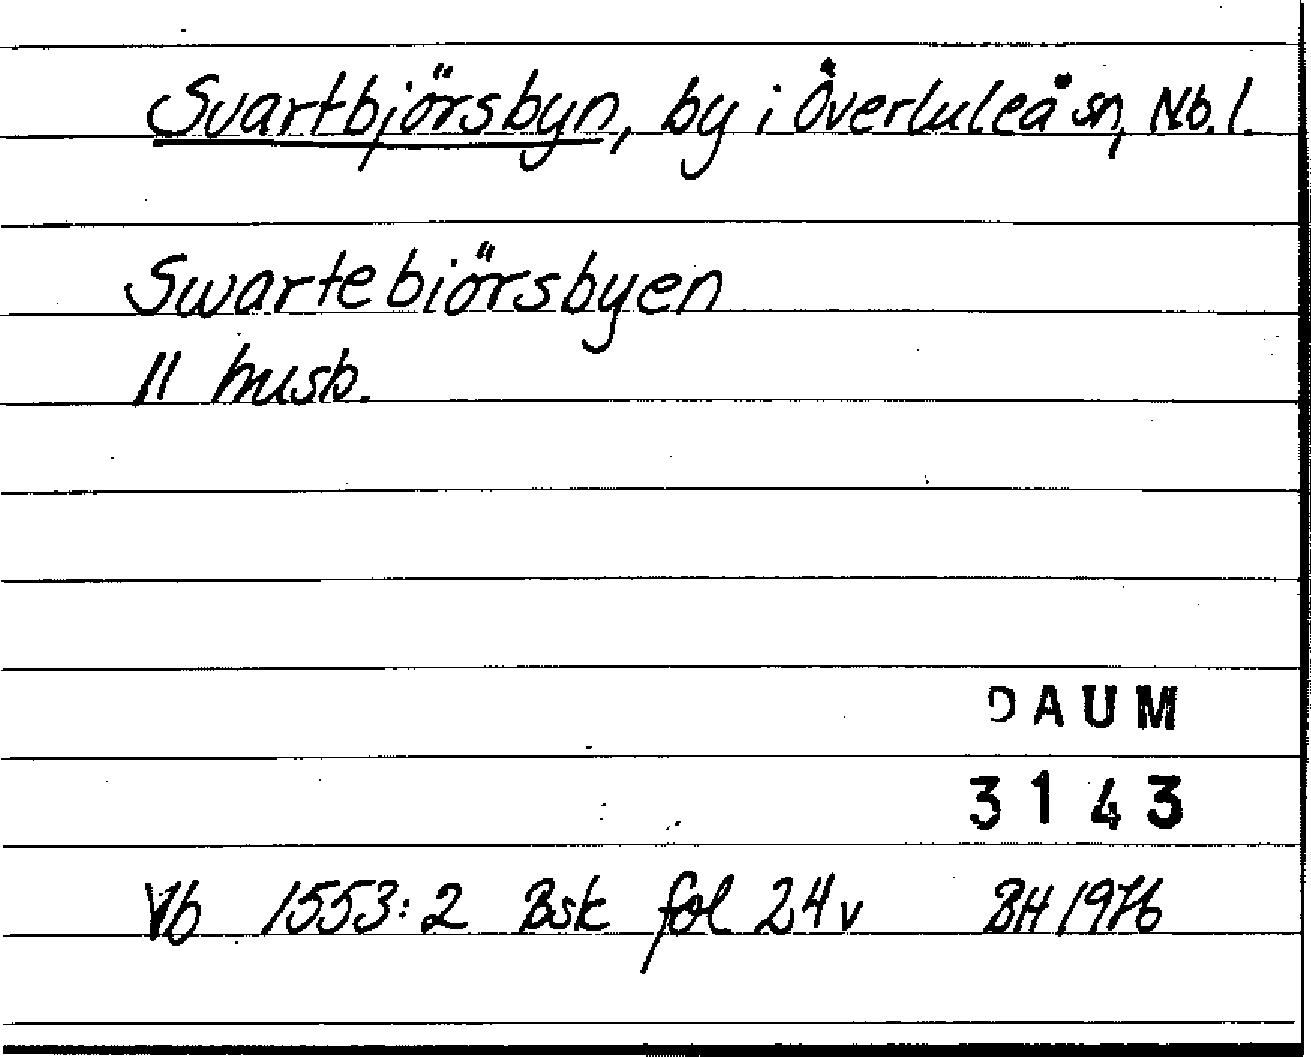 Svartbjörsbyn, by i Överluleå sn, Nb. l.
Swartebiörsbyen
11 husb.
DAUM
3143
Vb 1553:2 Bsk fol 24v BH 1976